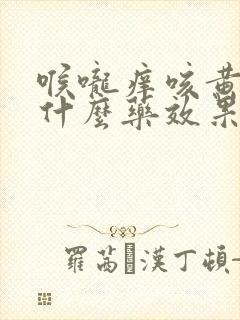 喉嚨痒咳黄
什麼藥效果
羅茜漢丁頓